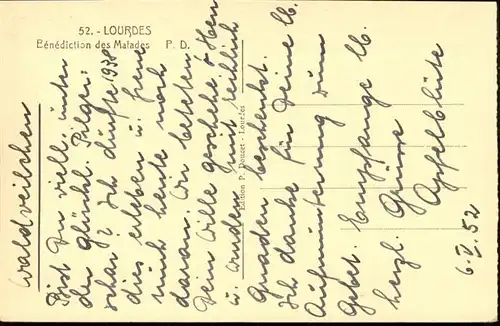 52. - LOURDES
Bénédiction des Malades P. D.
Edition P. Doucet - Lourdes
Waldveilchen
Bist Du viell. unter
den glückl. Pilger-
schar? Ich durfte 1938
dies erleben u. freue
mich heute noch
daran. Wir beteten
Dein Wille geschehe o Herr
u. wurden mit reichlich
Gnaden beschenkt.
Ich danke für Deine lb.
Aufmunterung zum
Gebet. Empfange lb.
herzl. Grüsse
Apfelblüte
6.V.52